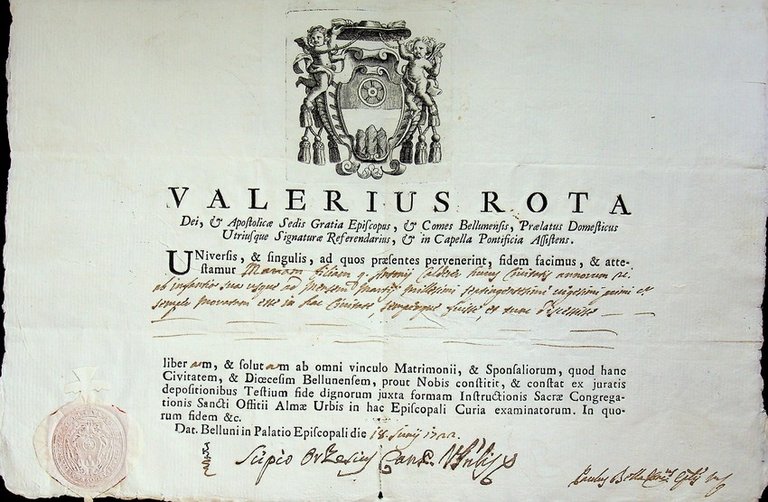 VALERIUS ROTA
Dei, & Apostolicæ Sedis Gratia Episcopus, & Comes Bellunensis, Prælatus Domesticus
Utriusque Signaturæ Referendarius, & in Capella Pontificia Assistens.
UNiversis, & singulis, ad quos præsentes pervenerint, fidem facimus, & atte-
stamur Mariam filiam q. Antonij huius Civitatis annorum
ab infantia sua usque ad Mensem Martij millesimi septingentesimi vigesimi primi et
semper moratam esse in hac Civitate, semperque fuisse, et tunc discessisse
liberam, & solutam ab omni vinculo Matrimonii, & Sponsaliorum, quod hanc
Civitatem, & Diœcesim Bellunensem, prout Nobis constitit, & constat ex juratis
depositionibus Testium fide dignorum juxta formam Instructionis Sacræ Congrega-
tionis Sancti Offitii Almæ Urbis in hac Episcopali Curia examinatorum. In quo-
rum fidem &c.
Dat. Belluni in Palatio Episcopali die 18 Junij 1722.
Scipio Orzesius Canc.
Paulus